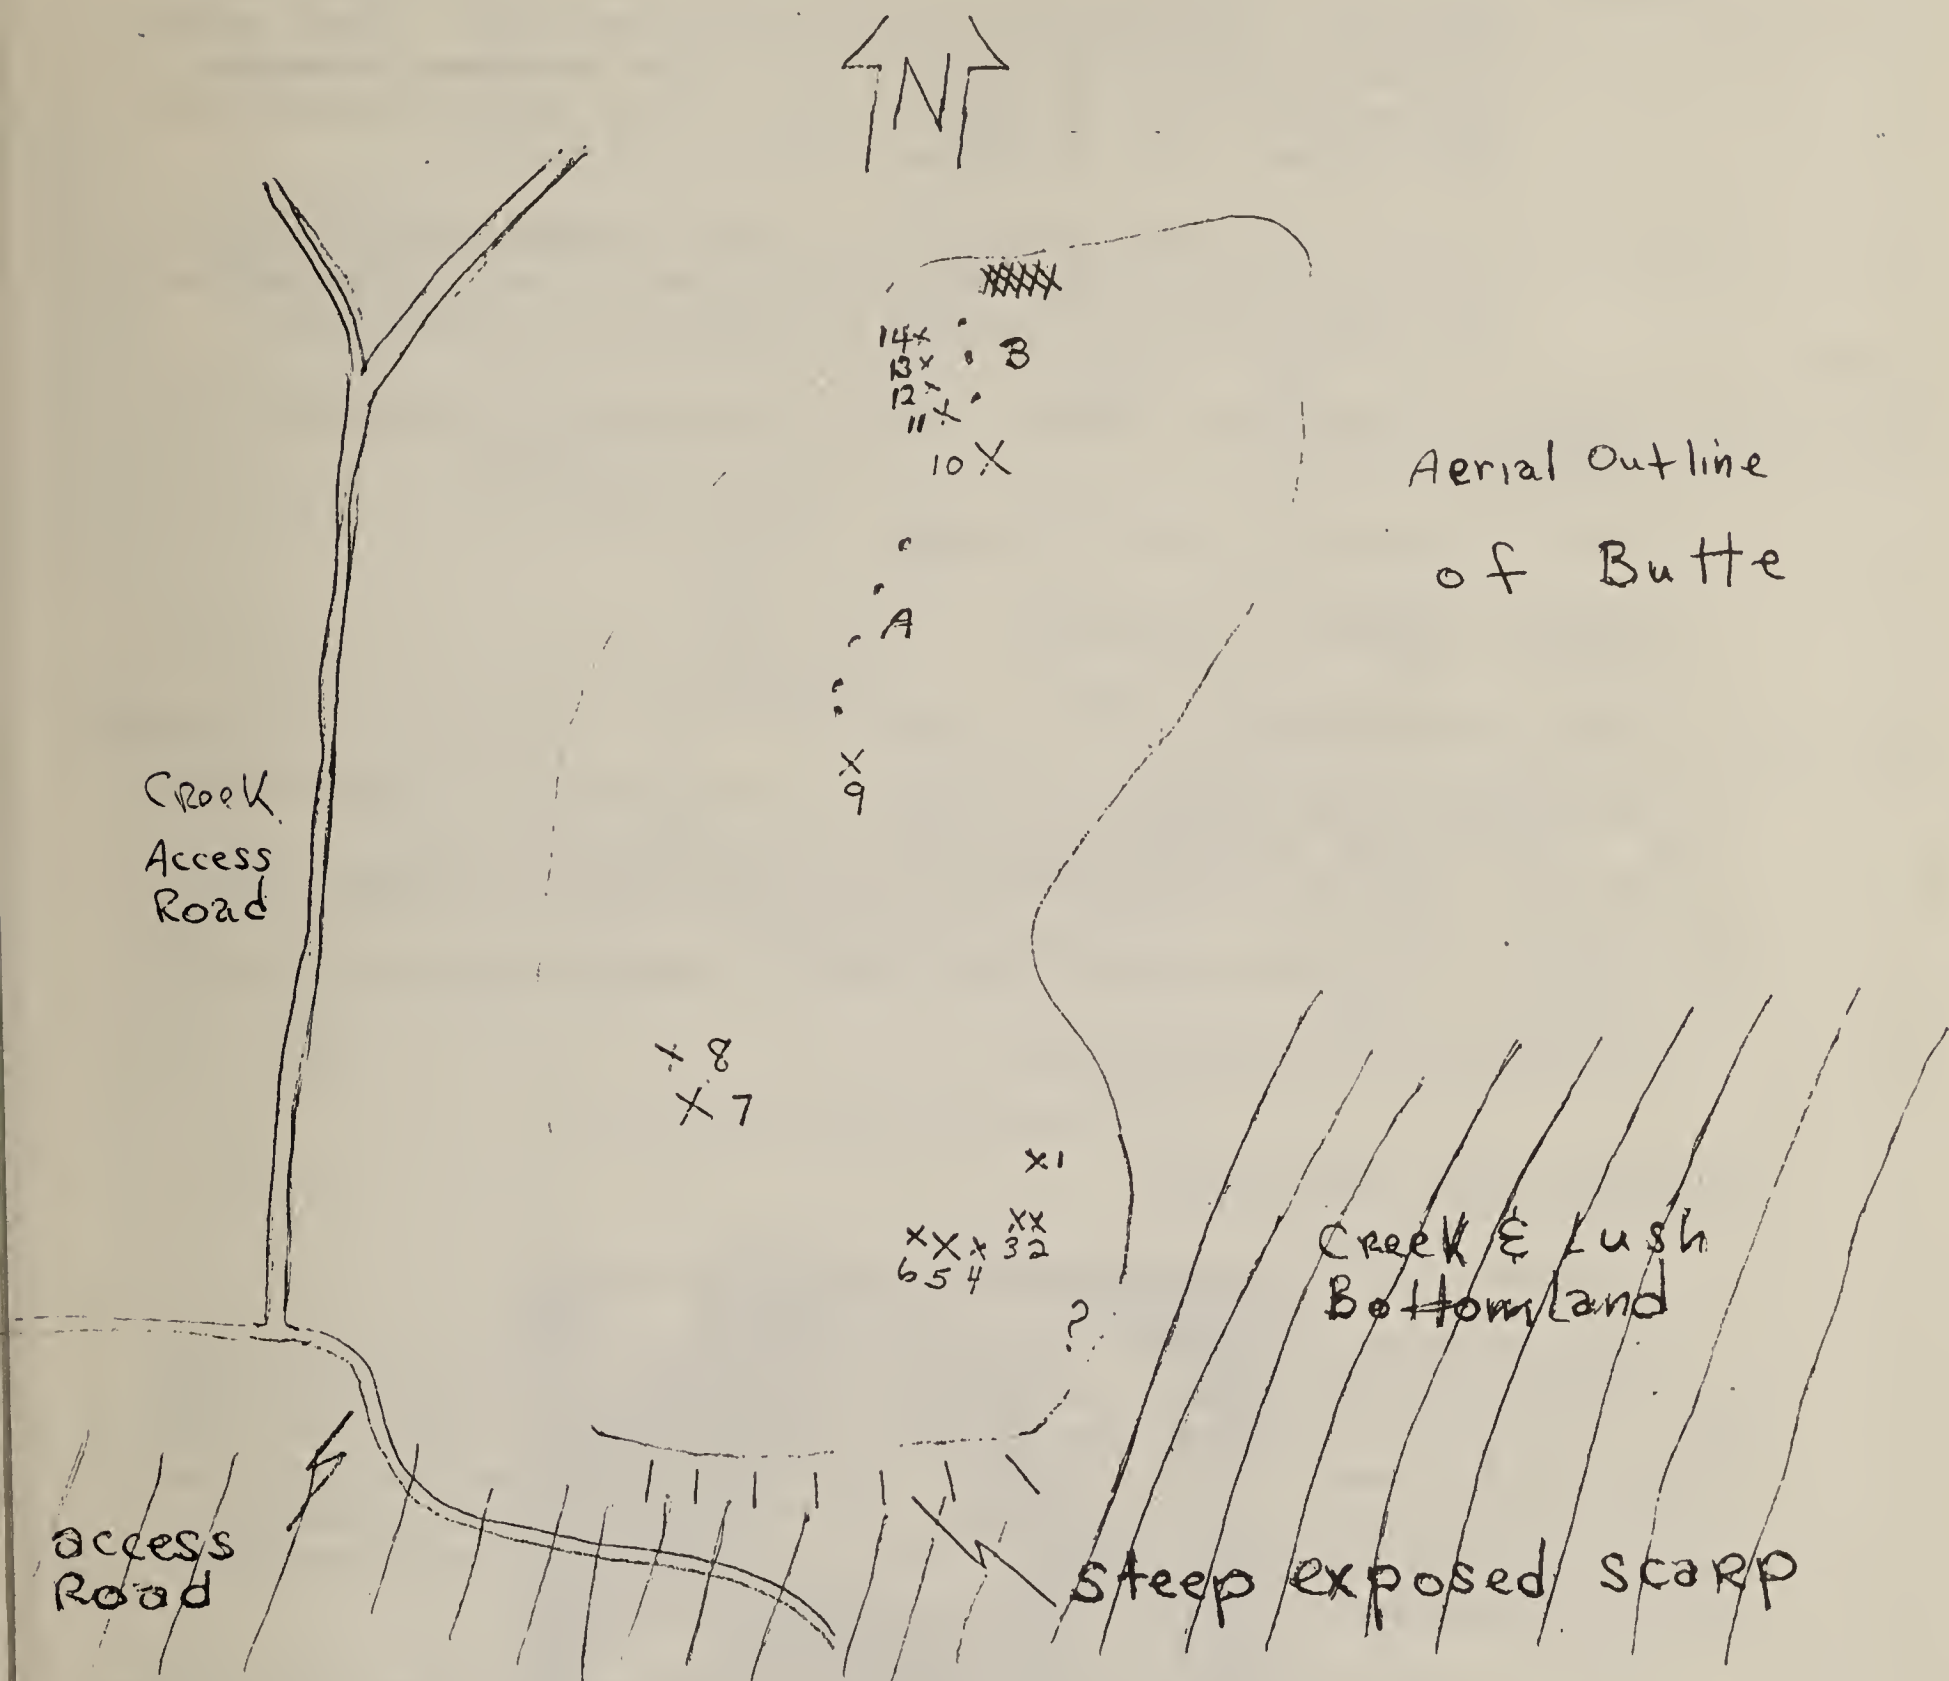 N
14x
13x
12x
11x
B
10 X
Aerial Outline
of Butte
A
x
9
Creek
Access
Road
x 8
X 7
x1
xx
32
xXx
654
?
Creek & Lush
Bottomland
access
Road
steep exposed scarp